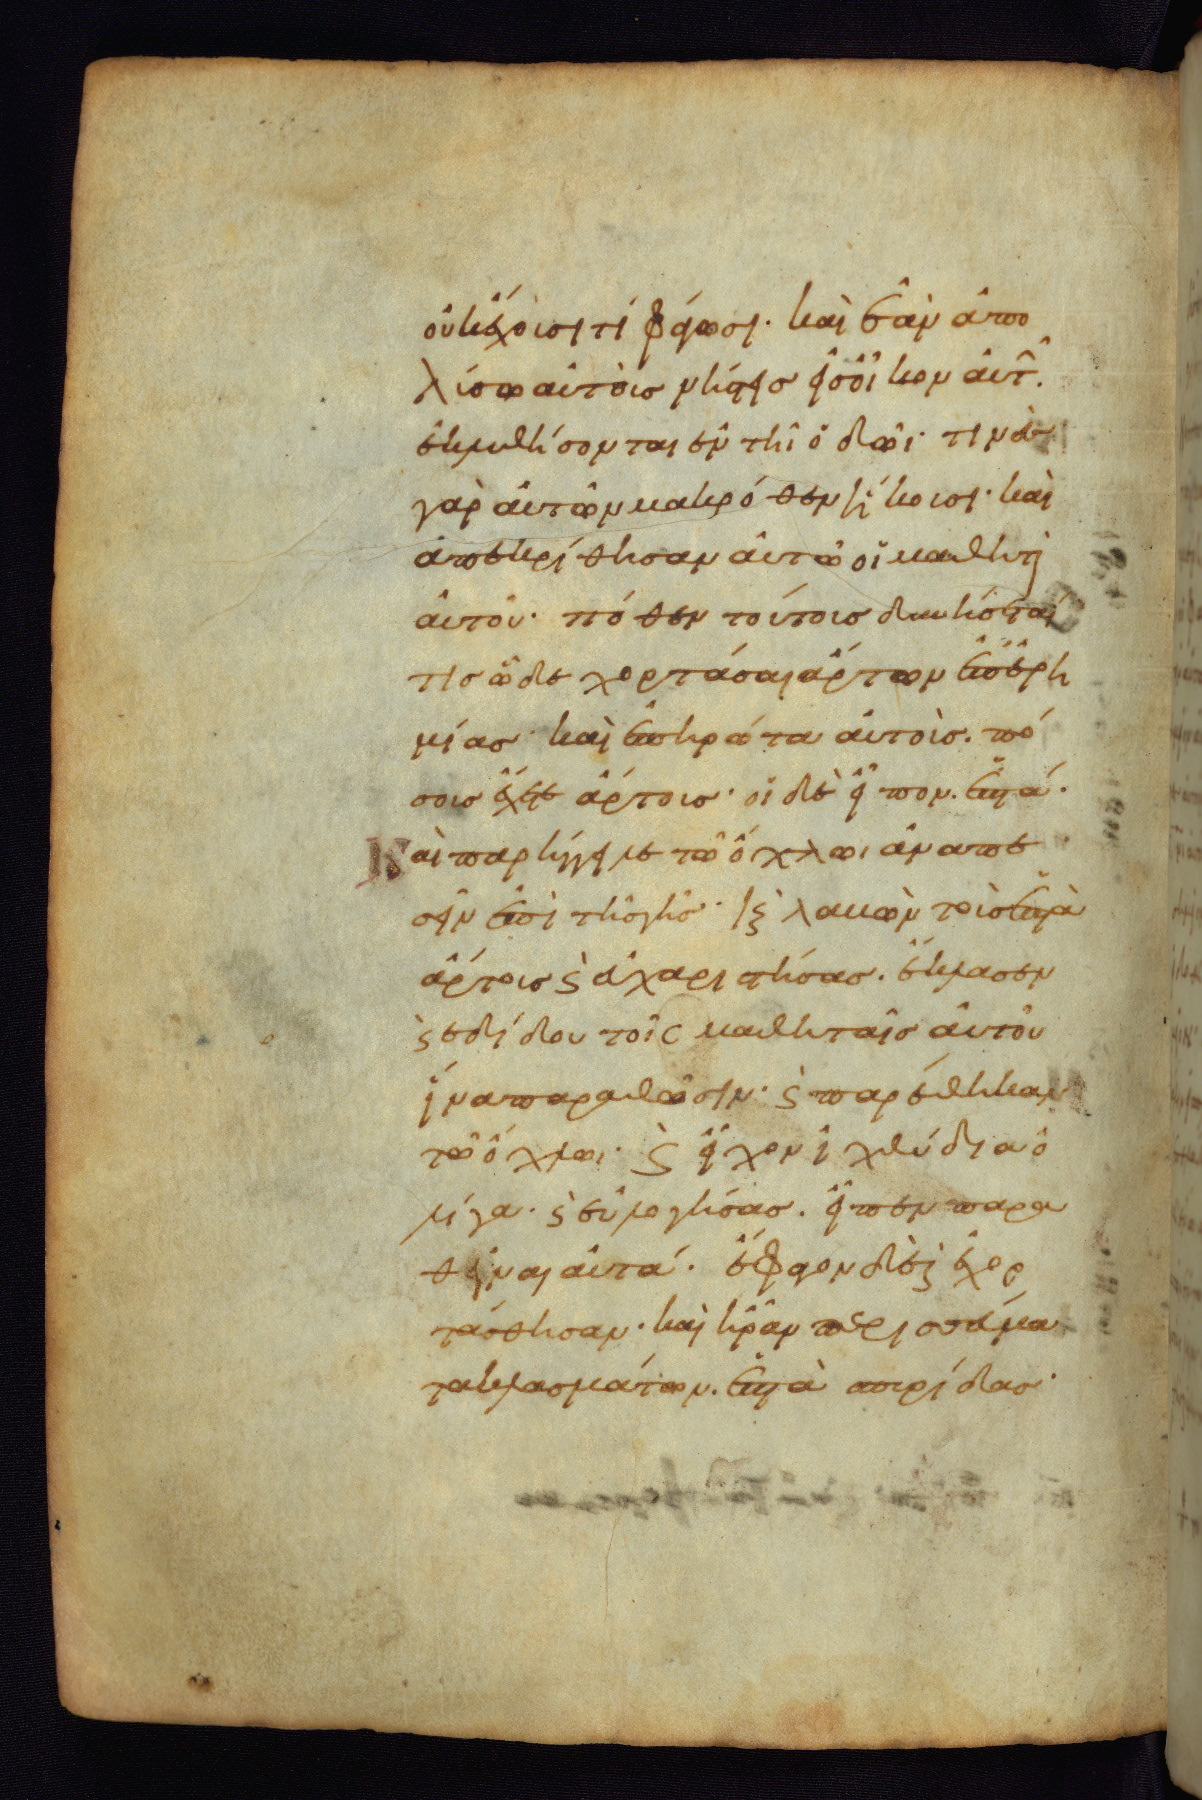 οὐκ ἔχουσι τί φάγωσι· καὶ ἐὰν ἀπο
λύσω αὐτοὺς νήστεις εἰς οἶκον αὐτῶν.
ἐκλυθήσονται ἐν τῆι ὁδῶι· τινὲς
γὰρ αὐτῶν μακρόθεν ἥκουσι· καὶ
ἀπεκρίθησαν αὐτῶ οἱ μαθηταὶ
αὐτοῦ· πόθεν τούτους δυνήσεταί
τις ὧδε χορτάσαι ἄρτων ἐπ' ἐρη
μίας· καὶ ἐπηρώτα αὐτοὺς. πό
σους ἔχετε ἄρτους· οἱ δὲ εἶπον. ἑπτά.
Καὶ παρήγγειλε τῶ ὄχλωι ἀναπε
σεῖν ἐπὶ τῆς γῆς· καὶ λαβὼν τοὺς ἑπτὰ
ἄρτους ϗ εὐχαριστήσας. ἔκλασεν
ϗ ἐδίδου τοῖς μαθηταῖς αὐτοῦ
ἵνα παραθῶσιν· ϗ παρέθηκαν
τῶ ὄχλωι· ϗ εἶχον ἰχθύδια ὀ
λίγα· ϗ εὐλογήσας. εἶπεν παρα
θεῖναι αὐτά. ἔφαγον δὲ ϗ ἐχορ
τάσθησαν· καὶ ἦραν περισσεύμα
τα κλασμάτων. ἑπτὰ σπυρίδας·